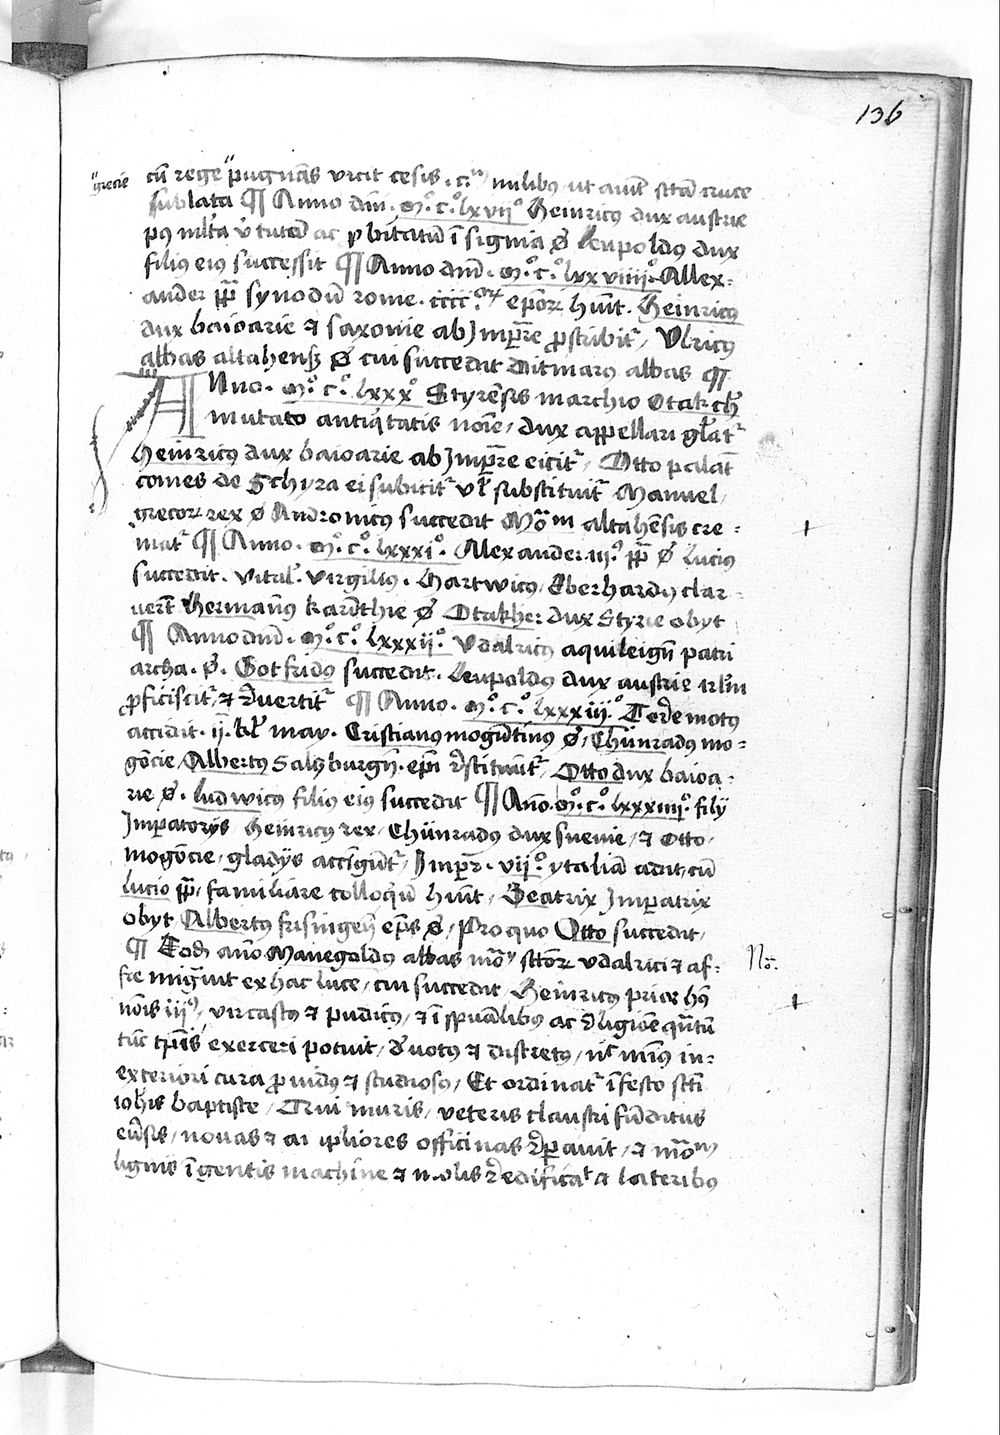 136
"grecie cū rege " pugnās vicit cesis . c.ᵐ milibus ut aiunt sctā cruce
sublata ¶ Anno dnī . mᵒ. cᵒ. lxvijᵒ Heinricus dux austrie
filius eius successit ¶ Anno dnī . mᵒ. cᵒ. lxxviiijᵒ. Allex-
ander pp̄ synodū rome . cccc.ᵒʳ epōꝝ huīt . Heinricus
dux baioarie ⁊ saxonie ab Impr̄e ꝓscribitᵘʳ / Vlricus
abbas altahenß ø cui succedit Ditmarus abbas ¶
Anno . mᵒ. cᵒ. lxxxᵒ Styrēsis marchio Otakch̄
mutato antiqᵗatis noīe / dux appellari gl̄atᵘʳ
Heinricus dux baioarie ab Impr̄e eicitᵘʳ / Otto palat̄
comes de Schyra ei subicitᵘʳ vl̄ substituitᵘʳ Manuel /
grecoꝝ rex ø Andronicus succedit Mōm altahēsis cre-
matᵘʳ ¶ Anno . mᵒ. cᵒ. lxxxiᵒ. Alexander .iij.ᵒ pp̄ ø Lucius
succedit . vital᾽. virgilius . Hartwicus / Eberhardus clar-
uerūt Hermanus karīthie ø Otakher dux Styrie obyt
¶ Anno dnī . mᵒ. cᵒ. lxxxijᵒ. Vdalricus aquileigēn patri
archa . ø . Gotfridus succedit . Leupoldus dux austrie irlm̄
ꝓficiscitᵘʳ ⁊ reuertitᵘʳ ¶ Anno . mᵒ. cᵒ. lxxxiijᵒ. Terremotus
accidit . ij. kl̄ may . Cristianus mogūtinus ø / Chūnradus mo-
gōcie / Albertus Salzburgn̄ . epī restituūtᵘʳ / Otto dux baioa-
rie ø . Ludwicus filius eius succedit ¶ Año . mᵒ. cᵒ. lxxxiiijᵒ. filij
Impatoris Heinricus rex / Chūnradus dux sueuie / ⁊ Otto /
mogōcie / gladijs accīgūtᵘʳ / Impr̄ . vijᵒ. ytaliā adit / cū
lucio pp̄ / familiare colloqū huīt / Beatrix Impatrix
obyt Albertus frisingēn ep̄s ø / Pro quo Otto succedit /
¶ Eodē año Manegoldus abbas mōʳ sctōꝝ vdalrici ⁊ af-
fre migᵃuit ex hac luce / cui succedit Heinricus prior hus
Nō.
nois iijᵘˢ / vir castus ⁊ pudicus / ⁊ ī spūalibus ac religiōe qūtū
tūc tp̄is exerceri potuit / deuotus ⁊ discretus / nl᾽ minus in-
exteriori cura ꝓuidus ⁊ studiosus / Et ordinatᵘʳ ī festo scti
ioh̄is baptiste / Qui muris / veteris claustri fūditus
euersis / nouas ⁊ ampliores officinas reparauit / ⁊ mōm
lignis īgentis machine ⁊ molis reedificat᾽ ⁊ lateribus